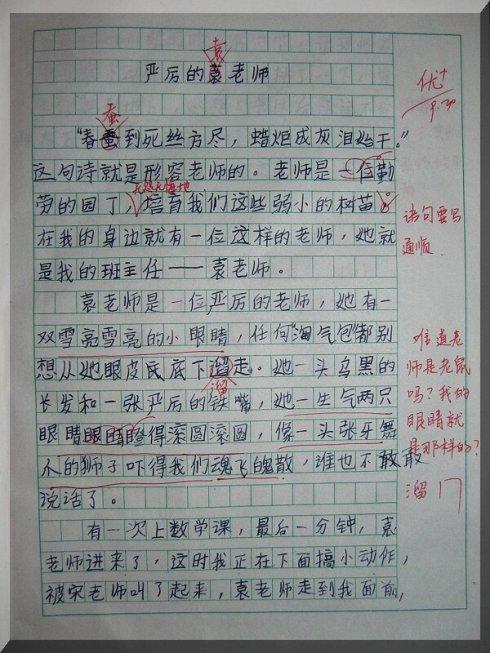 袁
严厉的袁老师
优+
9.30
蚕
“春蚕到死丝方尽，蜡炬成灰泪始干。”
这句诗就是形容老师的。老师是一位勤
无怨无悔地
劳的园丁，培育我们这些弱小的树苗。
在我的身边就有一位这样的老师，她就
是我的班主任——袁老师。
语句要写
通顺
袁老师是一位严厉的老师，她有一
双雪亮雪亮的小眼睛，任何“淘气包”都别
想从她眼皮底底下溜走。她一头乌黑的
溜
长发和一张严厉的铁嘴，她一生气两只
眼睛眼睛瞪得滚圆滚圆，像一头张牙舞
爪的狮子吓得我们魂飞魄散，谁也不敢敢
说话了。
难道老
师是老鼠
吗？我的
眼睛就
是那样的？
溜
有一次上数学课，最后一分钟，袁
老师进来了，这时我正在下面搞小动作，
被宋老师叫了起来，袁老师走到我面前，